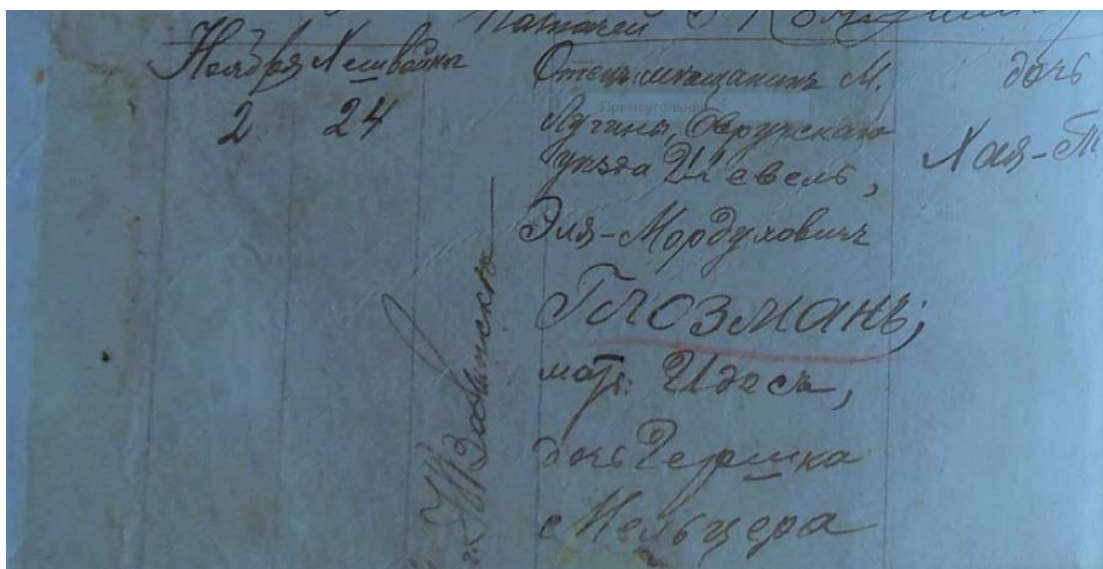 Ноября Хешвайна
2 24
Отецъ: мѣщанинъ М.
Лугины, Овручскаго
уѣзда Шевель,
Эля-Мордуховичъ
Глозманъ;
мать: Идесъ,
дочь Гершка
Мельцера
дочь
Хая-